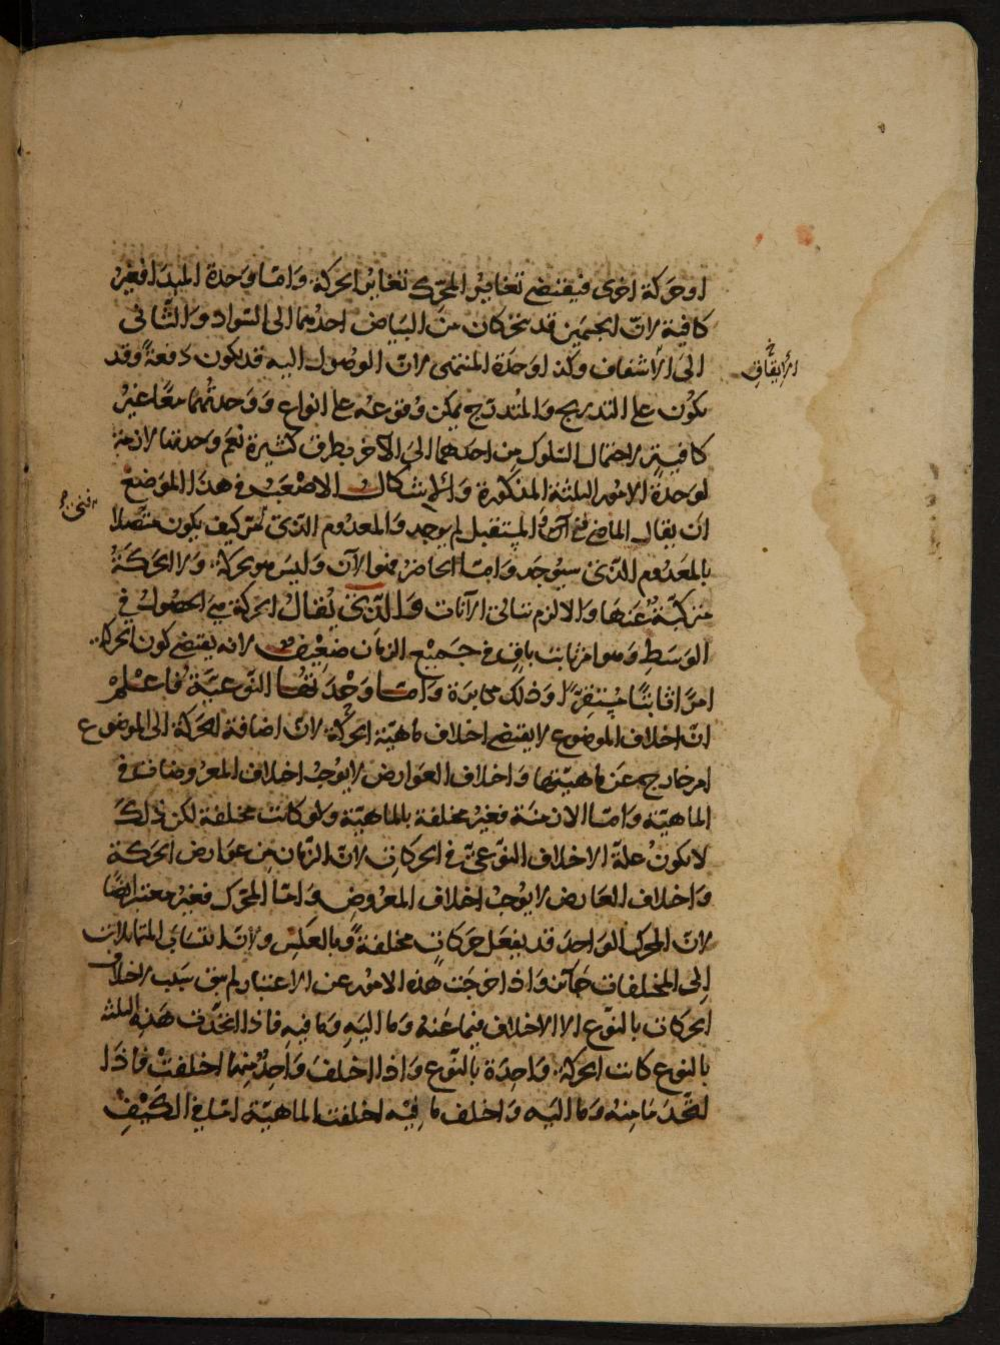 او حركة اخرى فيقتضى تغاير المحرك تغاير الحركة واما وحدة المبدا فغير
كافية لان الجسمين قد يتحركان من البياض احدهما الى السواد والثانى
الى الاشفاف وكذا وحدة المنتهى لان الوصول اليه قد يكون دفعة وقد
يكون على التدريج والمتدرج يمكن وقوعه على انواع ووحدتهما معا غير
كافية لاحتمال السلوك من احدهما الى الاخر بطرق كثيرة نعم وحدتها لازمة
لوحدة الامور الثلثة المذكورة والاشكال الاصعب فى هذا الموضع
ان يقال الماضى والمستقبل لم يوجد والمعدوم الذى كيف يكون متصلا
بالمعدوم الذى سيوجد واما الحاضر فهو الآن وليس هو بحركة ولا الحركة
مركبة عنها والا لزم تتالى الآنات والذى يقال الحركة هى الحصول فى
الوسط وهو امر ثابت باق فى جميع الزمان ضعيف لانه يقتضى كون الحركة
امرا ثابتا مستقرا وذلك مكابرة واما وحدتها النوعية فاعلم
ان اختلاف الموضوع لا يقتضى اختلاف ماهية الحركة لان اضافة الحركة الى الموضوع
امر خارج عن ماهيتها واختلاف العوارض لا يوجب اختلاف المعروضات فى
الماهية واما الازمنة فغير مختلفة بالماهية ولو كانت مختلفة لكن ذلك
لا يكون علة الاختلاف النوعى فى الحركات لان الزمان من عوارض الحركة
واختلاف العارض لا يوجب اختلاف المعروض واما المحرك فغير معتبر ايضا
لان المحرك الواحد قد يفعل حركات مختلفة وبالعكس ولان المتماثلات
الى المختلفات جائز واذا خرجت هذه الامور عن الاعتبار لم يبق سبب لاختلاف
الحركات بالنوع الا الاختلاف فيما عنه وما اليه وما فيه فاذا اتحدت هذه الثلثة
بالنوع كانت الحركة واحدة بالنوع واذا اختلف واحد منها اختلفت فاذا
اتحد ما منه وما اليه واختلف ما فيه اختلفت الماهية اما فى الكيف